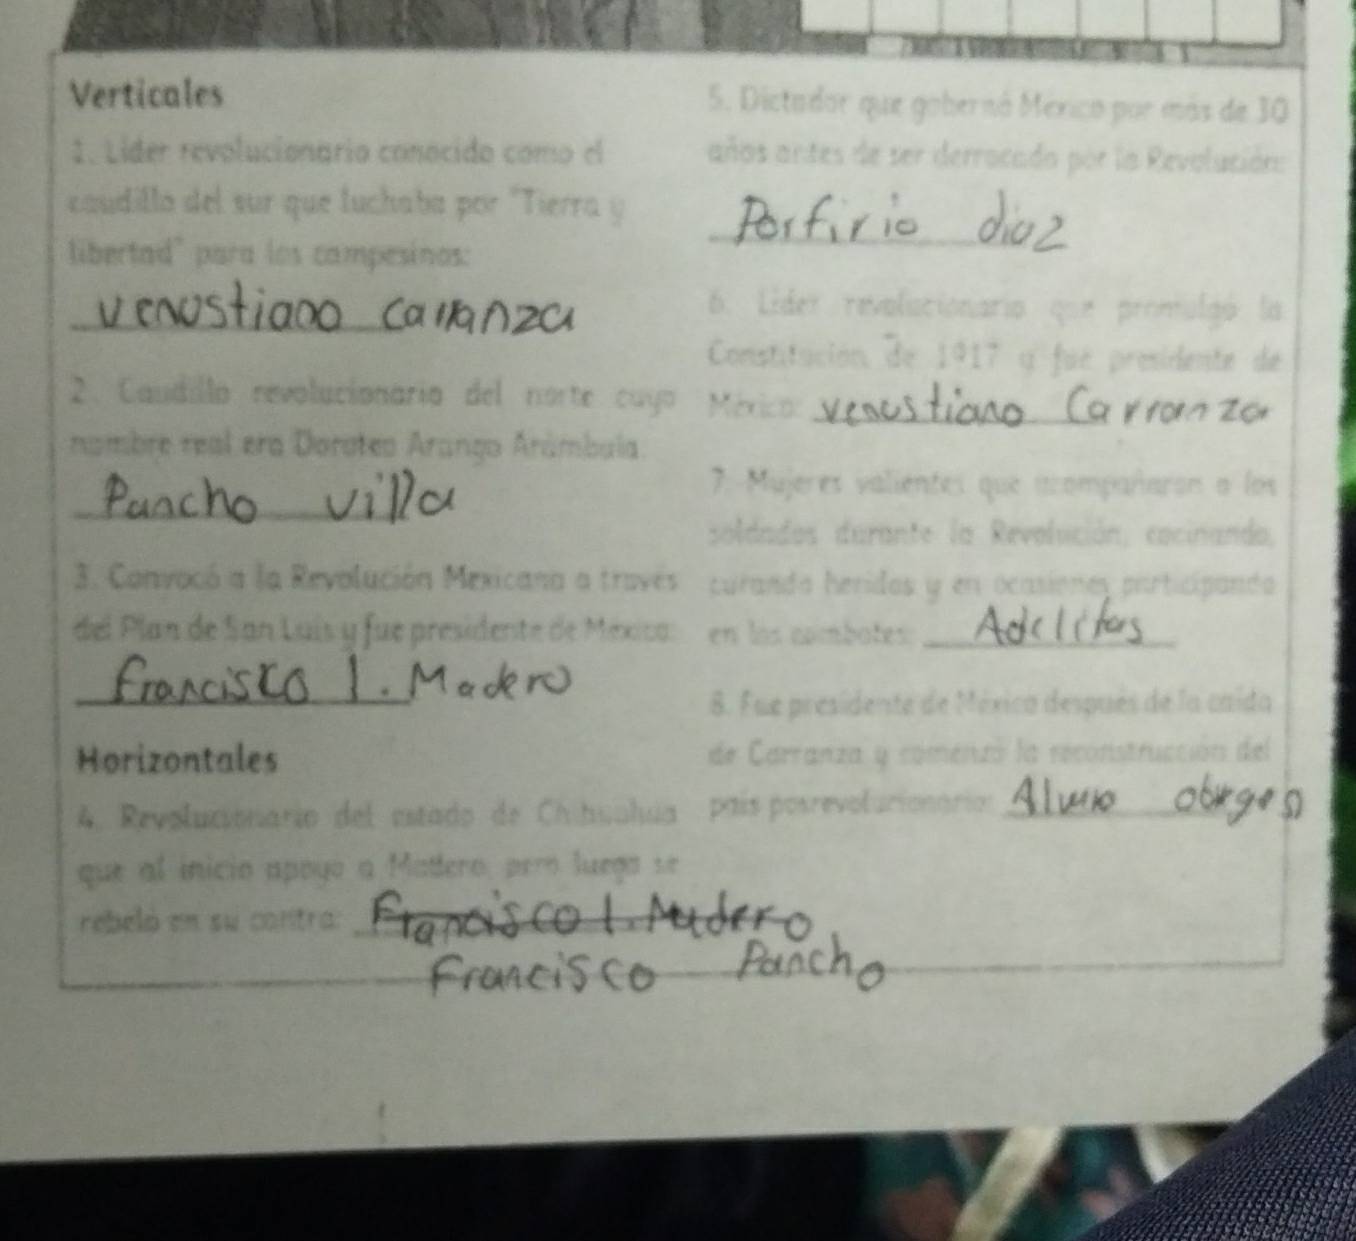 Verticales
1. Líder revolucionario conocido como el
caudillo del sur que luchaba por "Tierra y
libertad" para los campesinos:
venustiano carranza
2. Caudillo revolucionario del norte cuyo
nombre real era Doroteo Arango Arámbula.
Pancho villa
3. Convocó a la Revolución Mexicana a través
del Plan de San Luis y fue presidente de México:
francisco I. Madero
Horizontales
4. Revolucionario del estado de Chihuahua
que al inicio apoyo a Madero, pero luego se
rebeló en su contra:
Francisco I. Madero
Francisco Pancho
5. Dictador que gobernó México por más de 30
años antes de ser derrocado por la Revolución:
Porfirio diaz
6. Líder revolucionario que promulgó la
Constitución de 1917 y fue presidente de
México: venustiano Carranza
7. Mujeres valientes que acompañaron a los
soldados durante la Revolución, cocinando,
curando heridos y en ocasiones participando
en los combates: Adelitas
8. Fue presidente de México después de la caída
de Carranza y comenzó la reconstrucción del
país posrevolucionario: